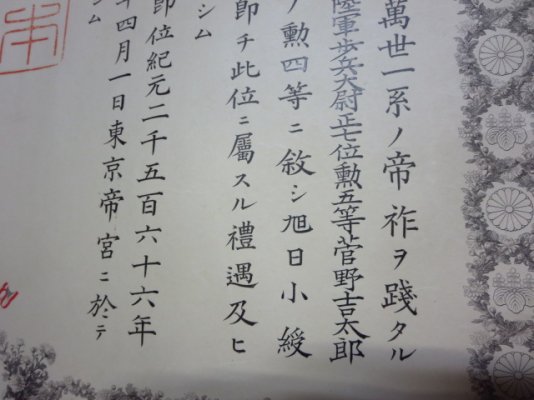 萬世一系ノ帝祚ヲ踐タル
陸軍歩兵大尉正七位勲五等菅野吉太郎
ノ勲四等ニ敘シ旭日小綬
卽チ此位ニ屬スル禮遇及ヒ
シム
卽位紀元二千五百六十六年
年四月一日東京帝宮ニ於テ
シム